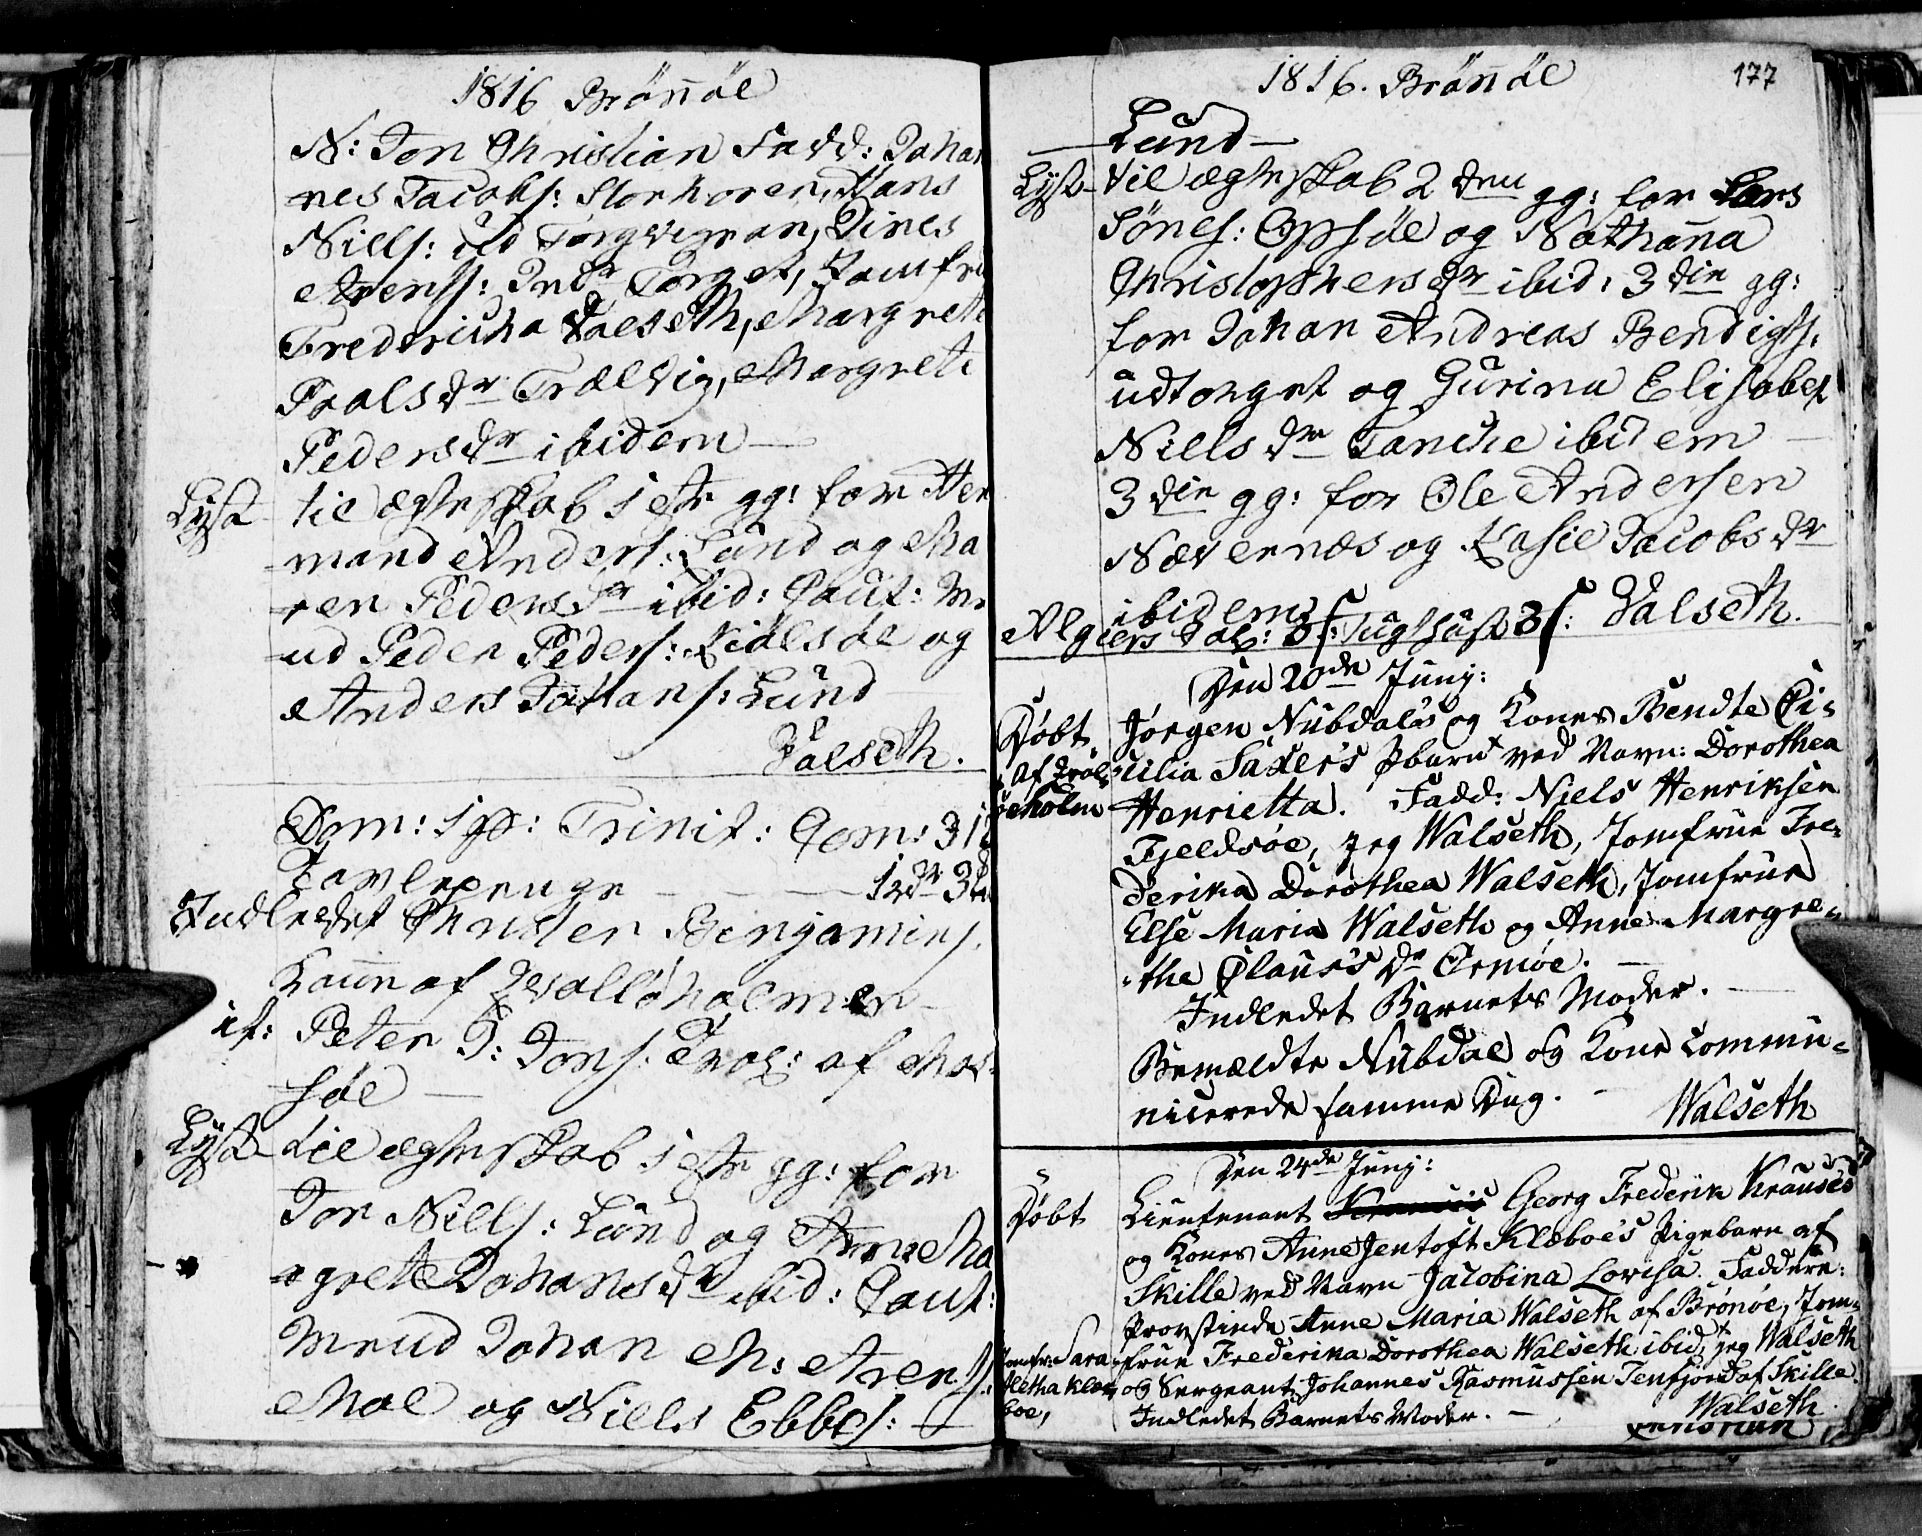 1816 Brönnöe
N: Jon Christian Fadd: Johan
nes Jacobs: Storhoren, Hans
Niells: ud Torgvegran, Dines
Arentss: Indr Torget, Jomfru
Fredericha Valseth, Margrete
Poalsdr Trælvig, Margrete
Pedersdr ibidem —
Lyst til ægteskab 1ste gg: for Her
mand Anders: Lund og Ma
ren Pedersdr ibid: Caut: M
ud Peder Peders: Kiölsöe og
Anders Johans: Lund
Valseth.
Dom: 1 p: Trinit: Com: 31
Tavlepenge — — 1
Indledet Christen Benjamins.
Kaun af Qvalløholmen —
it: Peter J: Jons: af Mo
söe —
Lyst til ægteskab 1ste gg: for
Jon Niells: Lund og Anne Ma
grete Johansdr ibid: Caut:
mend Johan M: Arents:
Moe og Niels Ebbes: —
1816. Brönnöe
177
— Lund —
Lyst til ægteskab 2den gg: for Lars
Sönes: Opsöe og Nathanna
Christophersdr ibid: 3die gg:
for Johan Andreas Bendigts:
udtorget og Gurina Elisabet
Niellsdr Tandie ibidem —
3die gg: for Ole Andersen
Nævernæs og Kasie Jacobsdr
ibidem Valseth.
Algiers Sal: 3 s: Tugthuset 3 s:
Den 20de Junij:
Døbt Jørgen Nubdal's og Kones Bendte Ci-
af Trøl- cilia Saxer's Pbarn ved Navn: Dorothea
öeholm Henrietta. Fadd: Niels Henriksen
Fjeldsøe, jeg Walseth, Jomfrue Fre-
derika Dorothea Walseth, Jomfrue
Else Maria Walseth og Anne Margre-
the Claus's dr Ormøe. —
Indledet Barnets Moder. —
Bemældte Nubdal og Kone commu-
nicerede samme Dag. —
Walseth
Den 24de Junij:
Døbt Lieutenant Georg Frederik Krause's
og Kones Anne Jentoft Klæboe's Pigebarn af
Skille ved Navn Jacobina Lovisa. Faddere:
Provstinde Anne Maria Walseth af Brønøe, Jom-
Jomfr: Sara frue Frederika Dorothea Walseth ibid, jeg Walseth
Aletha Klæ- og Sergeant Johannes Rasmussen Tenfjord af Skille
boe, Indledet Barnets Moder. —
Walseth